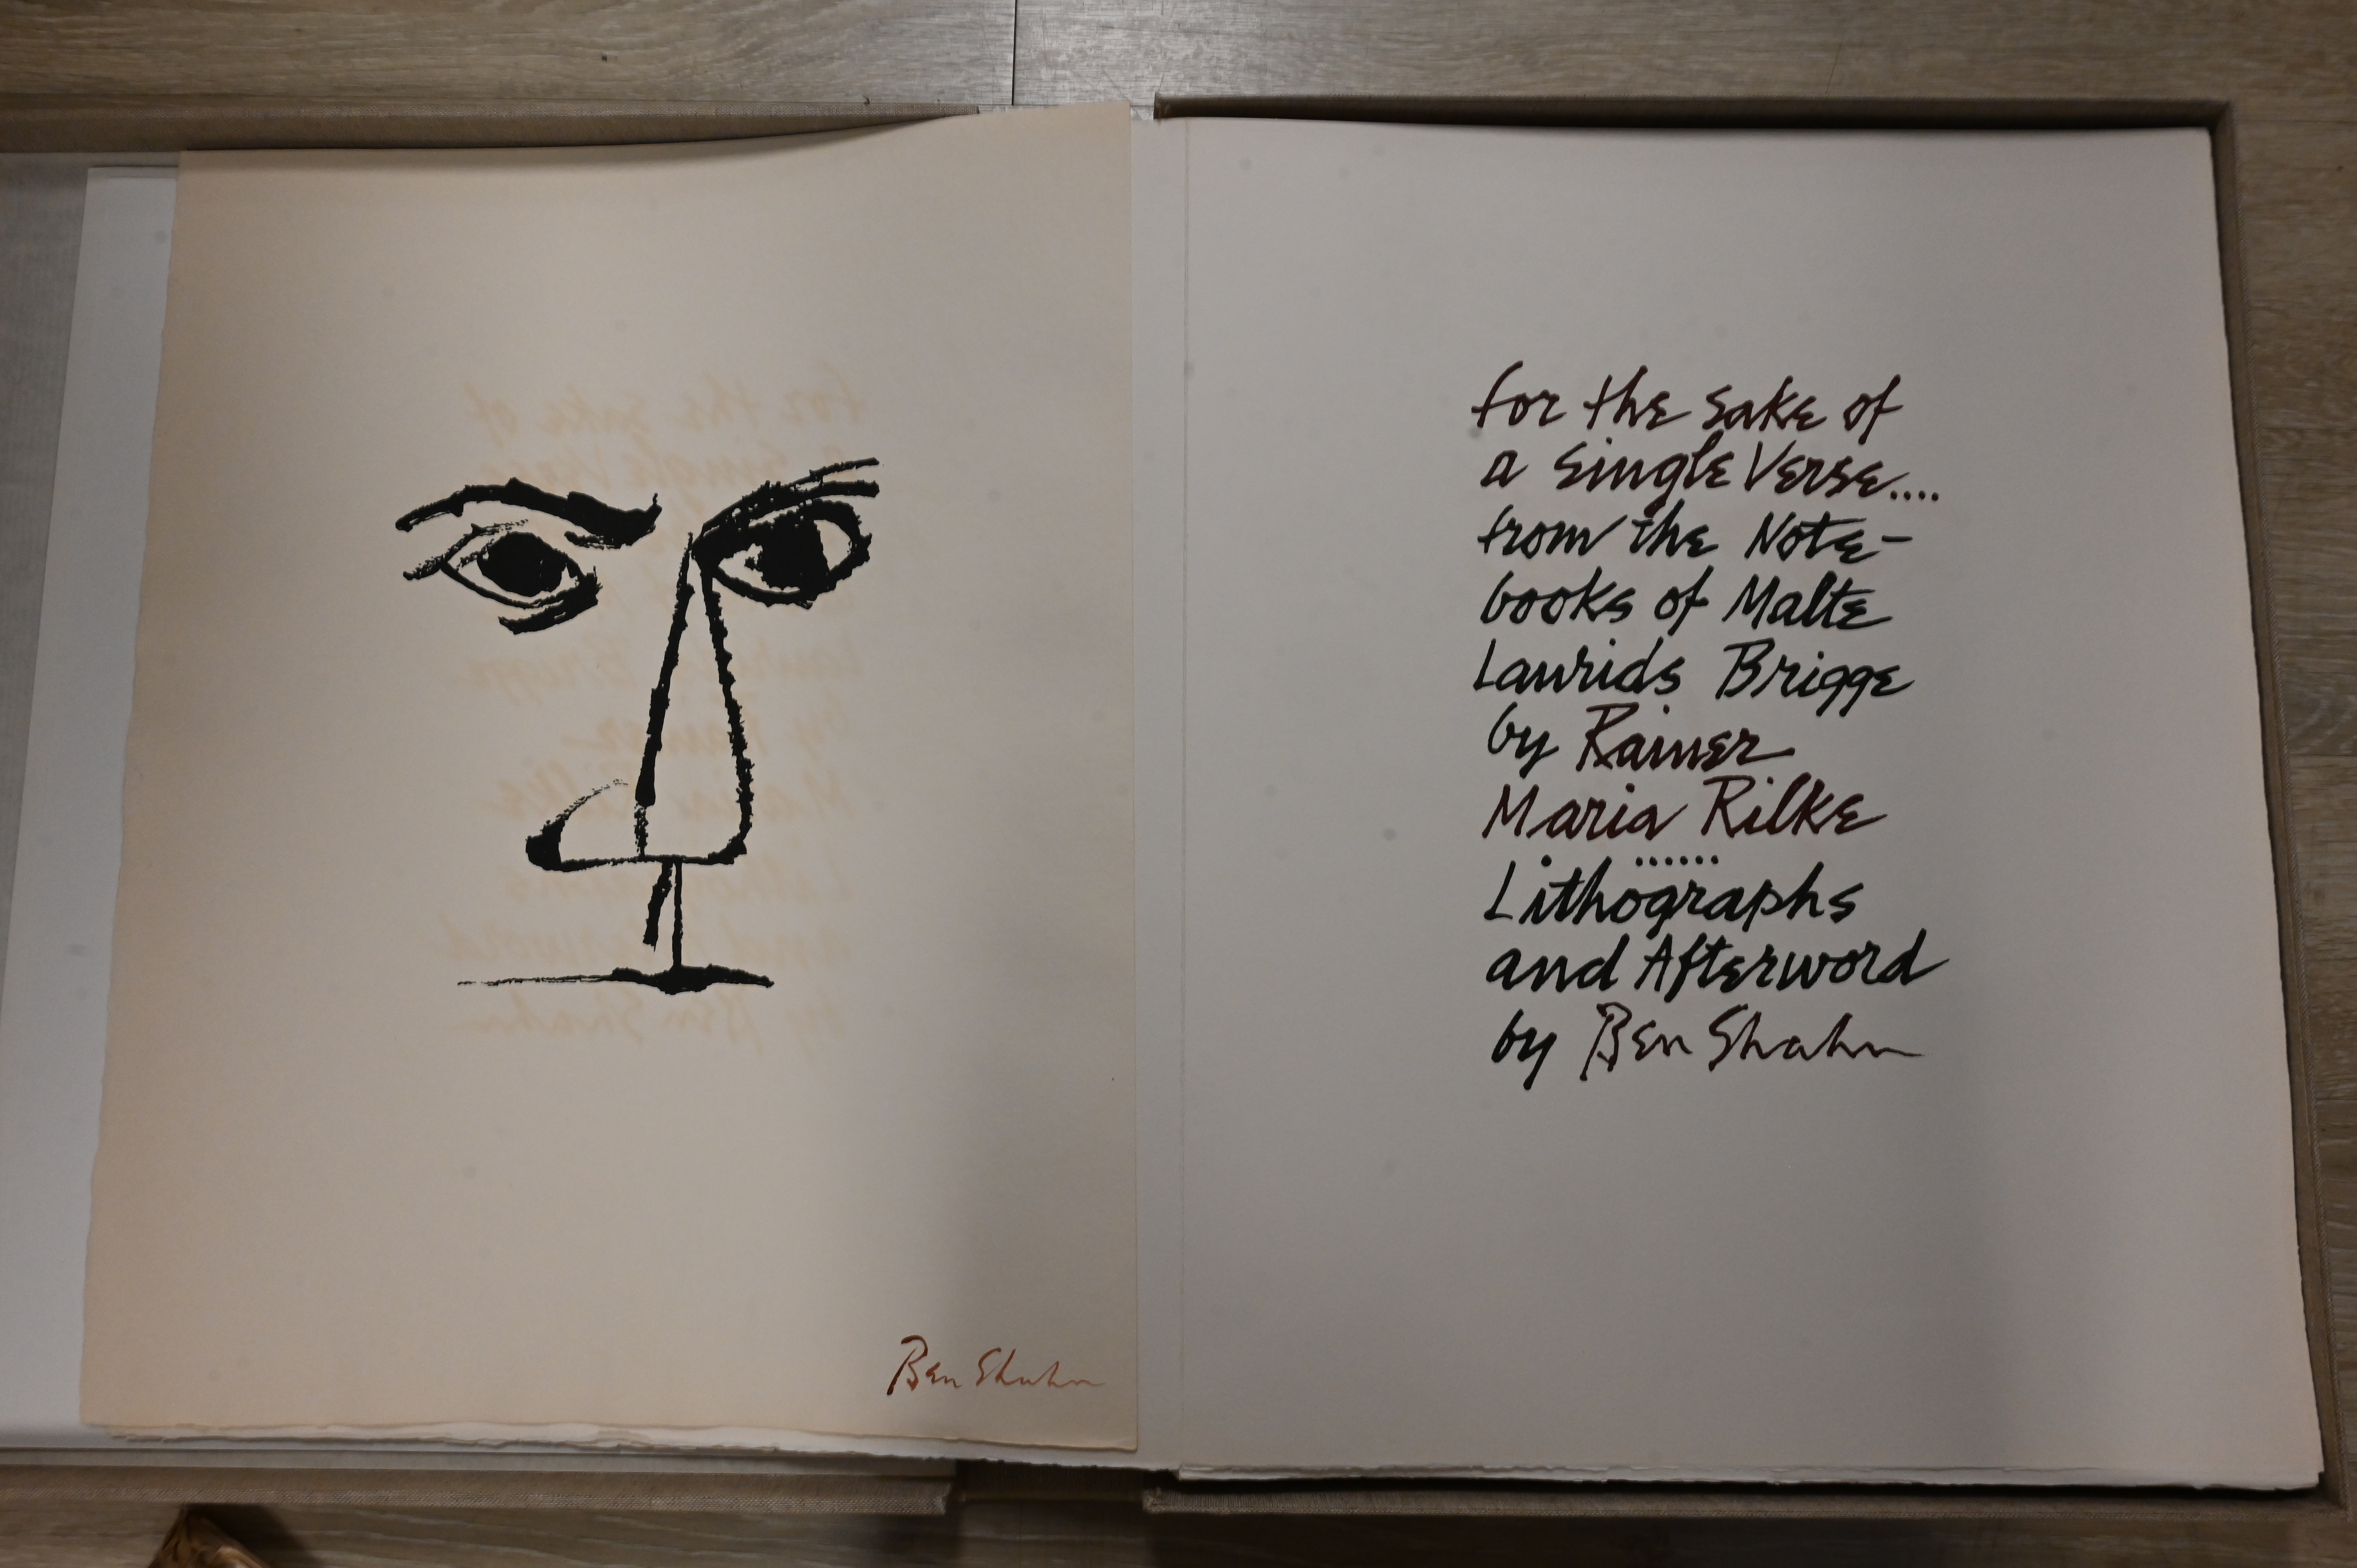 Ben Shahn
for the sake of
a Single Verse....
from the Note-
books of Malte
Laurids Brigge
by Rainer
Maria Rilke
......
Lithographs
and Afterword
by Ben Shahn